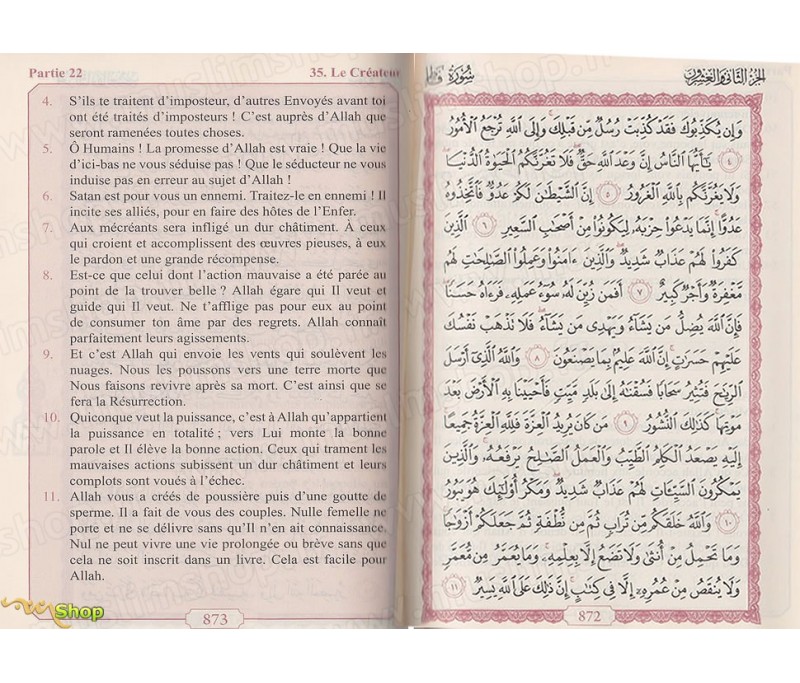 Partie 22
35. Le Créateur
4. S'ils te traitent d'imposteur, d'autres Envoyés avant toi
ont été traités d'imposteurs ! C'est auprès d'Allah que
seront ramenées toutes choses.
5. Ô Humains ! La promesse d'Allah est vraie ! Que la vie
d'ici-bas ne vous séduise pas ! Que le séducteur ne vous
induise pas en erreur au sujet d'Allah !
6. Satan est pour vous un ennemi. Traitez-le en ennemi ! Il
incite ses alliés, pour en faire des hôtes de l'Enfer.
7. Aux mécréants sera infligé un dur châtiment. À ceux
qui croient et accomplissent des œuvres pieuses, à eux
le pardon et une grande récompense.
8. Est-ce que celui dont l'action mauvaise a été parée au
point de la trouver belle ? Allah égare qui Il veut et
guide qui Il veut. Ne t'afflige pas pour eux au point
de consumer ton âme par des regrets. Allah connaît
parfaitement leurs agissements.
9. Et c'est Allah qui envoie les vents qui soulèvent les
nuages. Nous les poussons vers une terre morte que
Nous faisons revivre après sa mort. C'est ainsi que se
fera la Résurrection.
10. Quiconque veut la puissance, c'est à Allah qu'appartient
la puissance en totalité ; vers Lui monte la bonne
parole et Il élève la bonne action. Ceux qui trament les
mauvaises actions subissent un dur châtiment et leurs
complots sont voués à l'échec.
11. Allah vous a créés de poussière puis d'une goutte de
sperme. Il a fait de vous des couples. Nulle femelle ne
porte et ne se délivre sans qu'Il n'en ait connaissance.
Nul ne peut vivre une vie prolongée ou brève sans que
cela ne soit inscrit dans un livre. Cela est facile pour
Allah.
873
Shop
الجزء الثاني والعشرون
سُورَةُ فَاطِر
وَإِن يُكَذِّبُوكَ فَقَدْ كُذِّبَتْ رُسُلٌ مِّن قَبْلِكَ وَإِلَى اللَّهِ تُرْجَعُ الْأُمُورُ
٤ يَٰٓأَيُّهَا النَّاسُ إِنَّ وَعْدَ اللَّهِ حَقٌّ فَلَا تَغُرَّنَّكُمُ الْحَيَوٰةُ الدُّنْيَا
وَلَا يَغُرَّنَّكُم بِاللَّهِ الْغَرُورُ ٥ إِنَّ الشَّيْطَٰنَ لَكُمْ عَدُوٌّ فَاتَّخِذُوهُ
عَدُوًّا إِنَّمَا يَدْعُوا حِزْبَهُ لِيَكُونُوا مِنْ أَصْحَٰبِ السَّعِيرِ ٦ الَّذِينَ
كَفَرُوا لَهُمْ عَذَابٌ شَدِيدٌ وَالَّذِينَ ءَامَنُوا وَعَمِلُوا الصَّٰلِحَٰتِ لَهُم
مَّغْفِرَةٌ وَأَجْرٌ كَبِيرٌ ٧ أَفَمَن زُيِّنَ لَهُ سُوٓءُ عَمَلِهِ فَرَءَاهُ حَسَنًا
فَإِنَّ اللَّهَ يُضِلُّ مَن يَشَآءُ وَيَهْدِى مَن يَشَآءُ فَلَا تَذْهَبْ نَفْسُكَ
عَلَيْهِمْ حَسَرَٰتٍ إِنَّ اللَّهَ عَلِيمٌ بِمَا يَصْنَعُونَ ٨ وَاللَّهُ الَّذِىٓ أَرْسَلَ
الرِّيَٰحَ فَتُثِيرُ سَحَابًا فَسُقْنَٰهُ إِلَىٰ بَلَدٍ مَّيِّتٍ فَأَحْيَيْنَا بِهِ الْأَرْضَ بَعْدَ
مَوْتِهَا كَذَٰلِكَ النُّشُورُ ٩ مَن كَانَ يُرِيدُ الْعِزَّةَ فَلِلَّهِ الْعِزَّةُ جَمِيعًا
إِلَيْهِ يَصْعَدُ الْكَلِمُ الطَّيِّبُ وَالْعَمَلُ الصَّٰلِحُ يَرْفَعُهُ وَالَّذِينَ
يَمْكُرُونَ السَّيِّـَٔاتِ لَهُمْ عَذَابٌ شَدِيدٌ وَمَكْرُ أُولَٰٓئِكَ هُوَ يَبُورُ
١٠ وَاللَّهُ خَلَقَكُم مِّن تُرَابٍ ثُمَّ مِن نُّطْفَةٍ ثُمَّ جَعَلَكُمْ أَزْوَٰجًا
وَمَا تَحْمِلُ مِنْ أُنثَىٰ وَلَا تَضَعُ إِلَّا بِعِلْمِهِ وَمَا يُعَمَّرُ مِن مُّعَمَّرٍ
وَلَا يُنقَصُ مِنْ عُمُرِهِ إِلَّا فِى كِتَٰبٍ إِنَّ ذَٰلِكَ عَلَى اللَّهِ يَسِيرٌ ١١
872